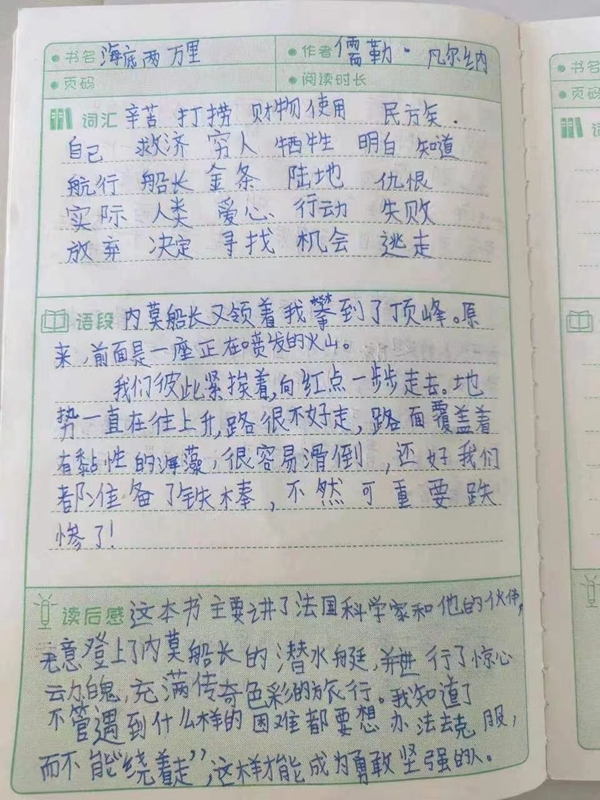 书名 海底两万里 作者 儒勒·凡尔纳
页码 阅读时长
词汇 辛苦 打捞 财物 使用 民族矣.
自己 救济 穷人 牺牲 明白 知道
航行 船长 金条 陆地 仇恨
实际 人类 爱心 行动 失败
放弃 决定 寻找 机会 逃走
语段 内莫船长又领着我攀到了顶峰。原
来,前面是一座正在喷发的火山。
我们彼此紧挨着,向红点一步步走去。地
势一直在往上升,路很不好走,路面覆盖着
有黏性的海藻,很容易滑倒,还好我们
都准备了铁棒,不然可重要跌
惨了!
读后感 这本书主要讲了法国科学家和他的伙伴,
无意登上了内莫船长的潜水艇,并进行了惊心
动魄,充满传奇色彩的旅行。我知道了
不管遇到什么样的困难都要想办法去克服,
而不能“绕着走”,这样才能成为勇敢坚强的人。
书名
页码